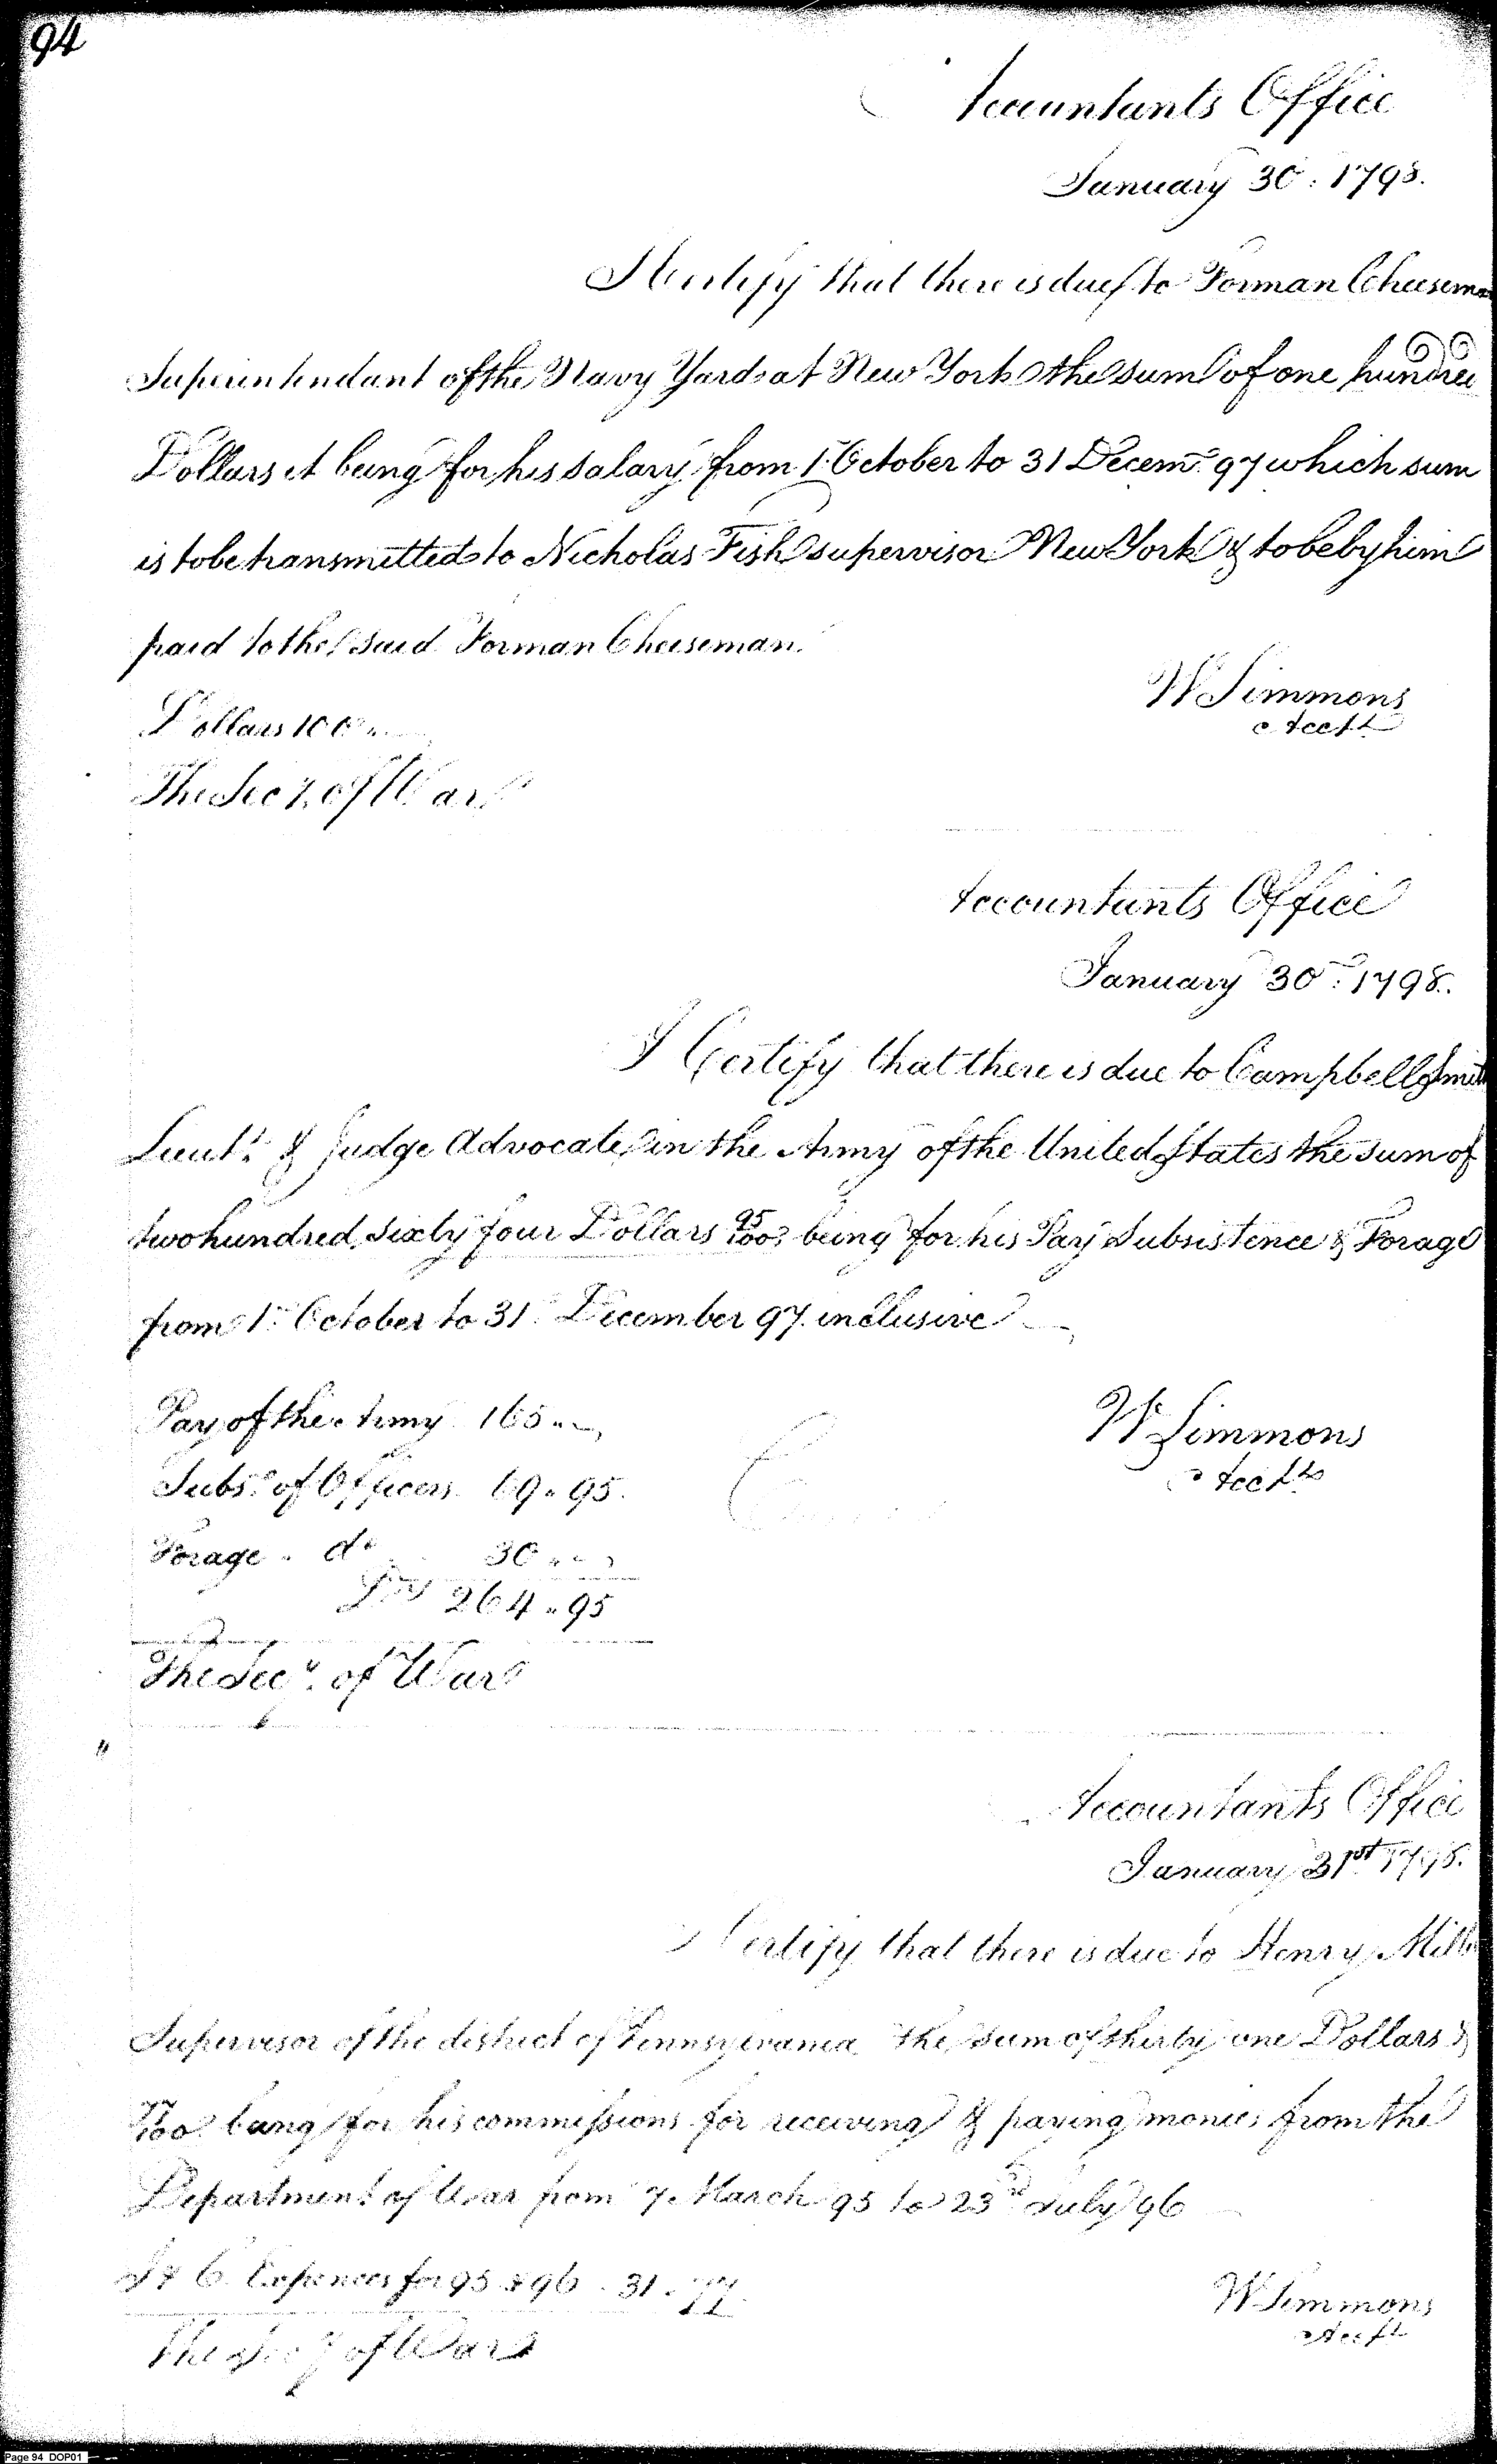 94
Accountants Office
January 30. 1798.
I Certify that there is due to Forman Cheeseman
Superintendant of the Navy Yard at New York the sum of one hundred
Dollars it being for his salary from 1 October to 31 Decemr. 97 which sum
is to be transmitted to Nicholas Fish supervisor New York & to be by him
paid to the said Forman Cheeseman.
W Simmons
Dollars 100
Acctt
The Secy. of War
Accountants Office
January 30th. 1798.
I Certify that there is due to Campbell Smith
Lieut. & Judge Advocate in the Army of the United States the sum of
two hundred sixty four Dollars 95/100 being for his Pay Subsistence & Forage
from 1st October to 31 December 97 inclusive
Pay of the Army 165 " -
W Simmons
Subs. of Officers 69 " 95.
Acctt
Forage " do 30 " -
Drs 264 " 95
The Secy. of War
Accountants Office
January 31st 1798.
I Certify that there is due to Henry Miller
Supervisor of the district of Pennsylvania the sum of thirty one Dollars &
77/100 being for his commissions for receiving & paying monies from the
Department of War from 7 March 95 to 23rd July 96
I & C Expences for 95 & 96 - 31 . 77
W Simmons
Acctt
The Secy of War
Page 94 DOP01